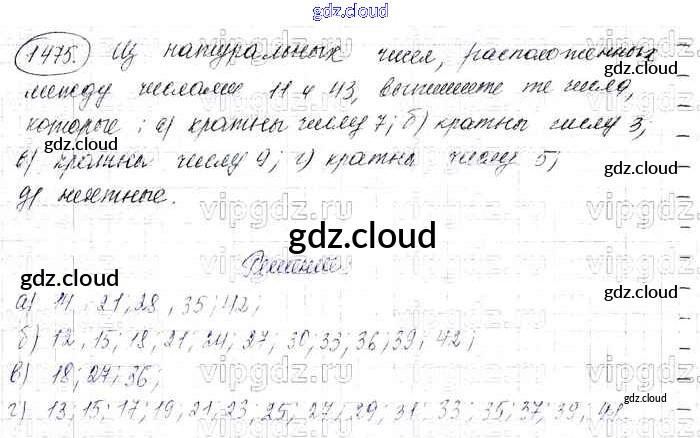 gdz.cloud
1475. Из натуральных чисел, расположенных
gdz.cloud
между числами 11 и 43, выпишите те числа,
gdz.cloud
которые: а) кратны числу 7; б) кратны числу 3;
gdz.cloud
в) кратны числу 9; г) кратны числу 5;
vipgdz.ru
д) нечётные.
vipgdz.ru
gdz.cloud
Решение
gdz.cloud
а) 14 21, 28, 35; 42;
gdz.cloud
б) 12, 15; 18; 21; 24; 27; 30; 33; 36; 39; 42;
в) 18; 27; 36;
vipgdz.ru
gdz.cloud
г) 13; 15; 17; 19; 21; 23; 25; 27; 29; 31; 33; 35; 37; 39; 41
gdz.cloud